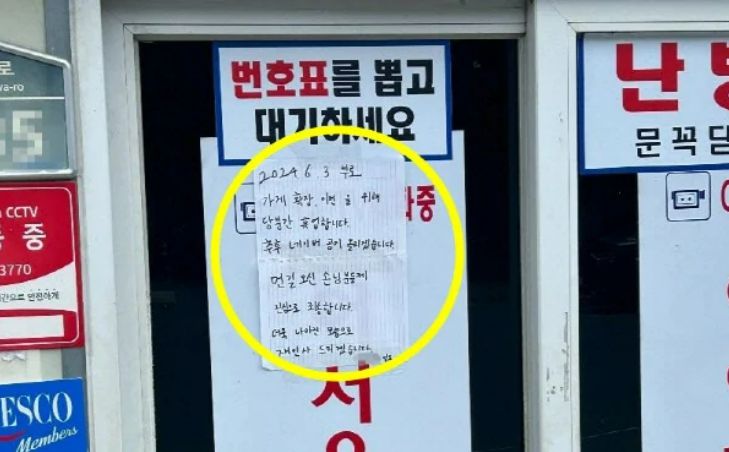 로
ya-ro
번호표를 뽑고
대기하세요
2024 6 3 부로
가게 확장.이전 을 위해
당분간 휴업합니다.
추후 네이버 공지 올리겠습니다.
먼길 오신 손님분들께
진심으로 죄송합니다.
더욱 나아진 모습으로
재인사 드리겠습니다.
중
서
난방
문 꼭 닫
CCTV
중
3770
ESCO
Members